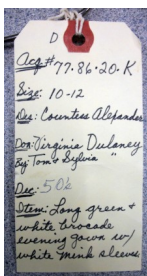 D
Acq# 77.86.20.K
Size: 10-12
Des: Countess Alexander
Don: Virginia Dulaney
By: Tom & Sylvia "
Dec: 50's
Item: Long green &
white brocade
evening gown w/
white mink sleeves